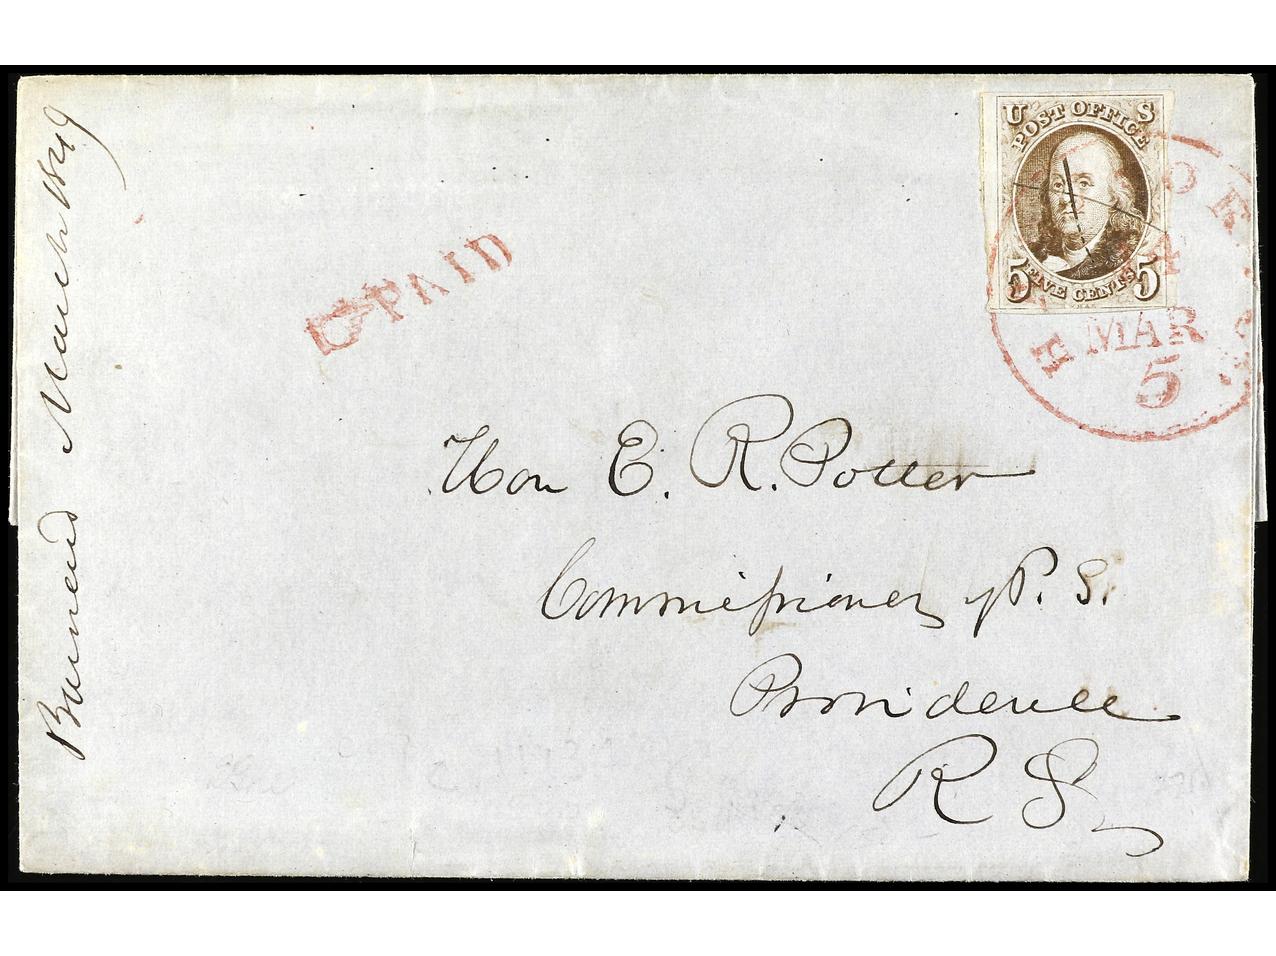 U S
POST OFFICE
5 FIVE CENTS 5
4
MAR
5
PAID
Hon E. R. Potter
Commissioner of P. S.
Providence
R I
March 1849